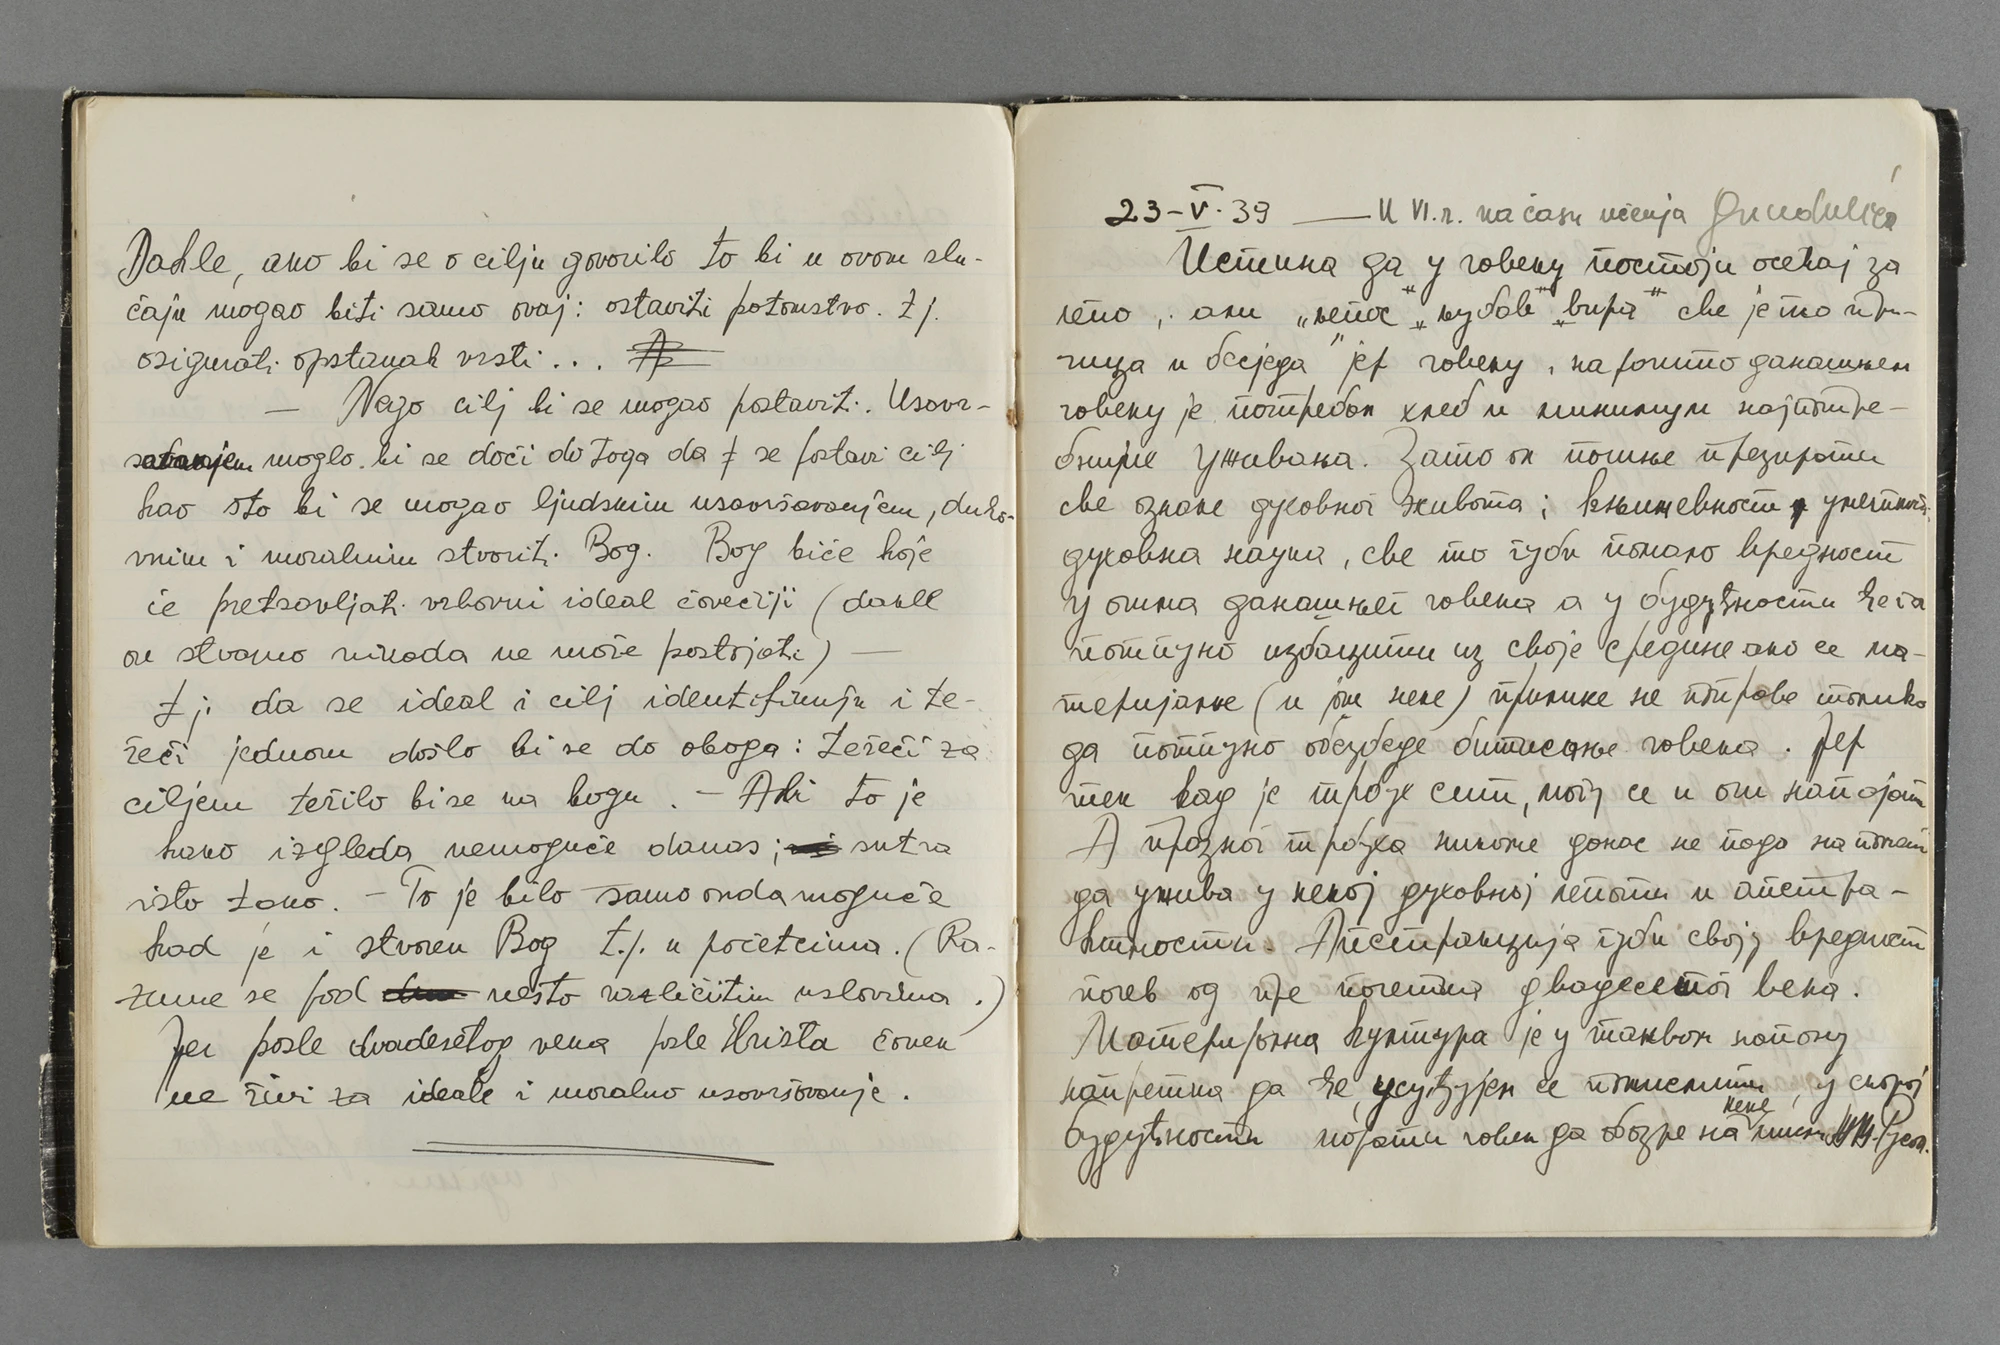 Dakle, ako bi se o cilju govorilo to bi u ovom slu-
čaju mogao biti samo ovaj: ostaviti potomstvo. tj.
osigurati opstanak vrsti...
— Nego cilj bi se mogao postaviti. Usavr-
moglo bi se doći do toga da se postavi cilj
kao što bi se mogao ljudskim usavršavanjem, duho-
vnim i moralnim stvoriti Bog. Bog biće koje
će pretsavljati vrhovni ideal čovečiji (dakle
on stvarno nikada ne može postojati) —
tj. da se ideal i cilj identifikuju i te-
žeći jednom došlo bi se do oboga: težeći za
ciljem težilo bi se na bogu. — Ali to je
kako izgleda nemoguće danas; sutra
isto tako. — To je bilo samo onda moguće
kad je i stvoren Bog t.j. u početcima. (Ra-
zume se pod nešto različitim uslovima.)
Jer posle dvadesetog veka posle Hrista čovek
ne živi za ideale i moralno usavršavanje.
23-V.39 — U VI.r. na času učenja Gundulića
Истина да у човеку постоји осећај за
лепо, али „љепос“ „љубав“ „вира“ све је то при-
чица и бесједа“ јер човеку, нарочито данашњем
човеку је потребан хлеб и минимум најпотре-
бније уживања. Зато он почиње презирати
све ознаке духовног живота; књижевност, уметност,
духовна наука, све то губи помало вредност
у очима данашњег човека а у будућности ће га
потпуно избацити из своје средине ако се ма-
теријалне (и још неке) прилике не поправе толико
да потпуно обезбеде битисање човека. Јер
тек кад је трбух сит, могу се и очи напојати
А празног трбуха никоме данас не пада на памет
да ужива у некој духовној лепоти и апстра-
ктности. Апстракција губи своју вредност
почев од пре почетка двадесетог века.
Материјална култура је у таквом напону
напретка да ће, усуђујем се помислити, у скорој
будућности морати човек да обазре на неке